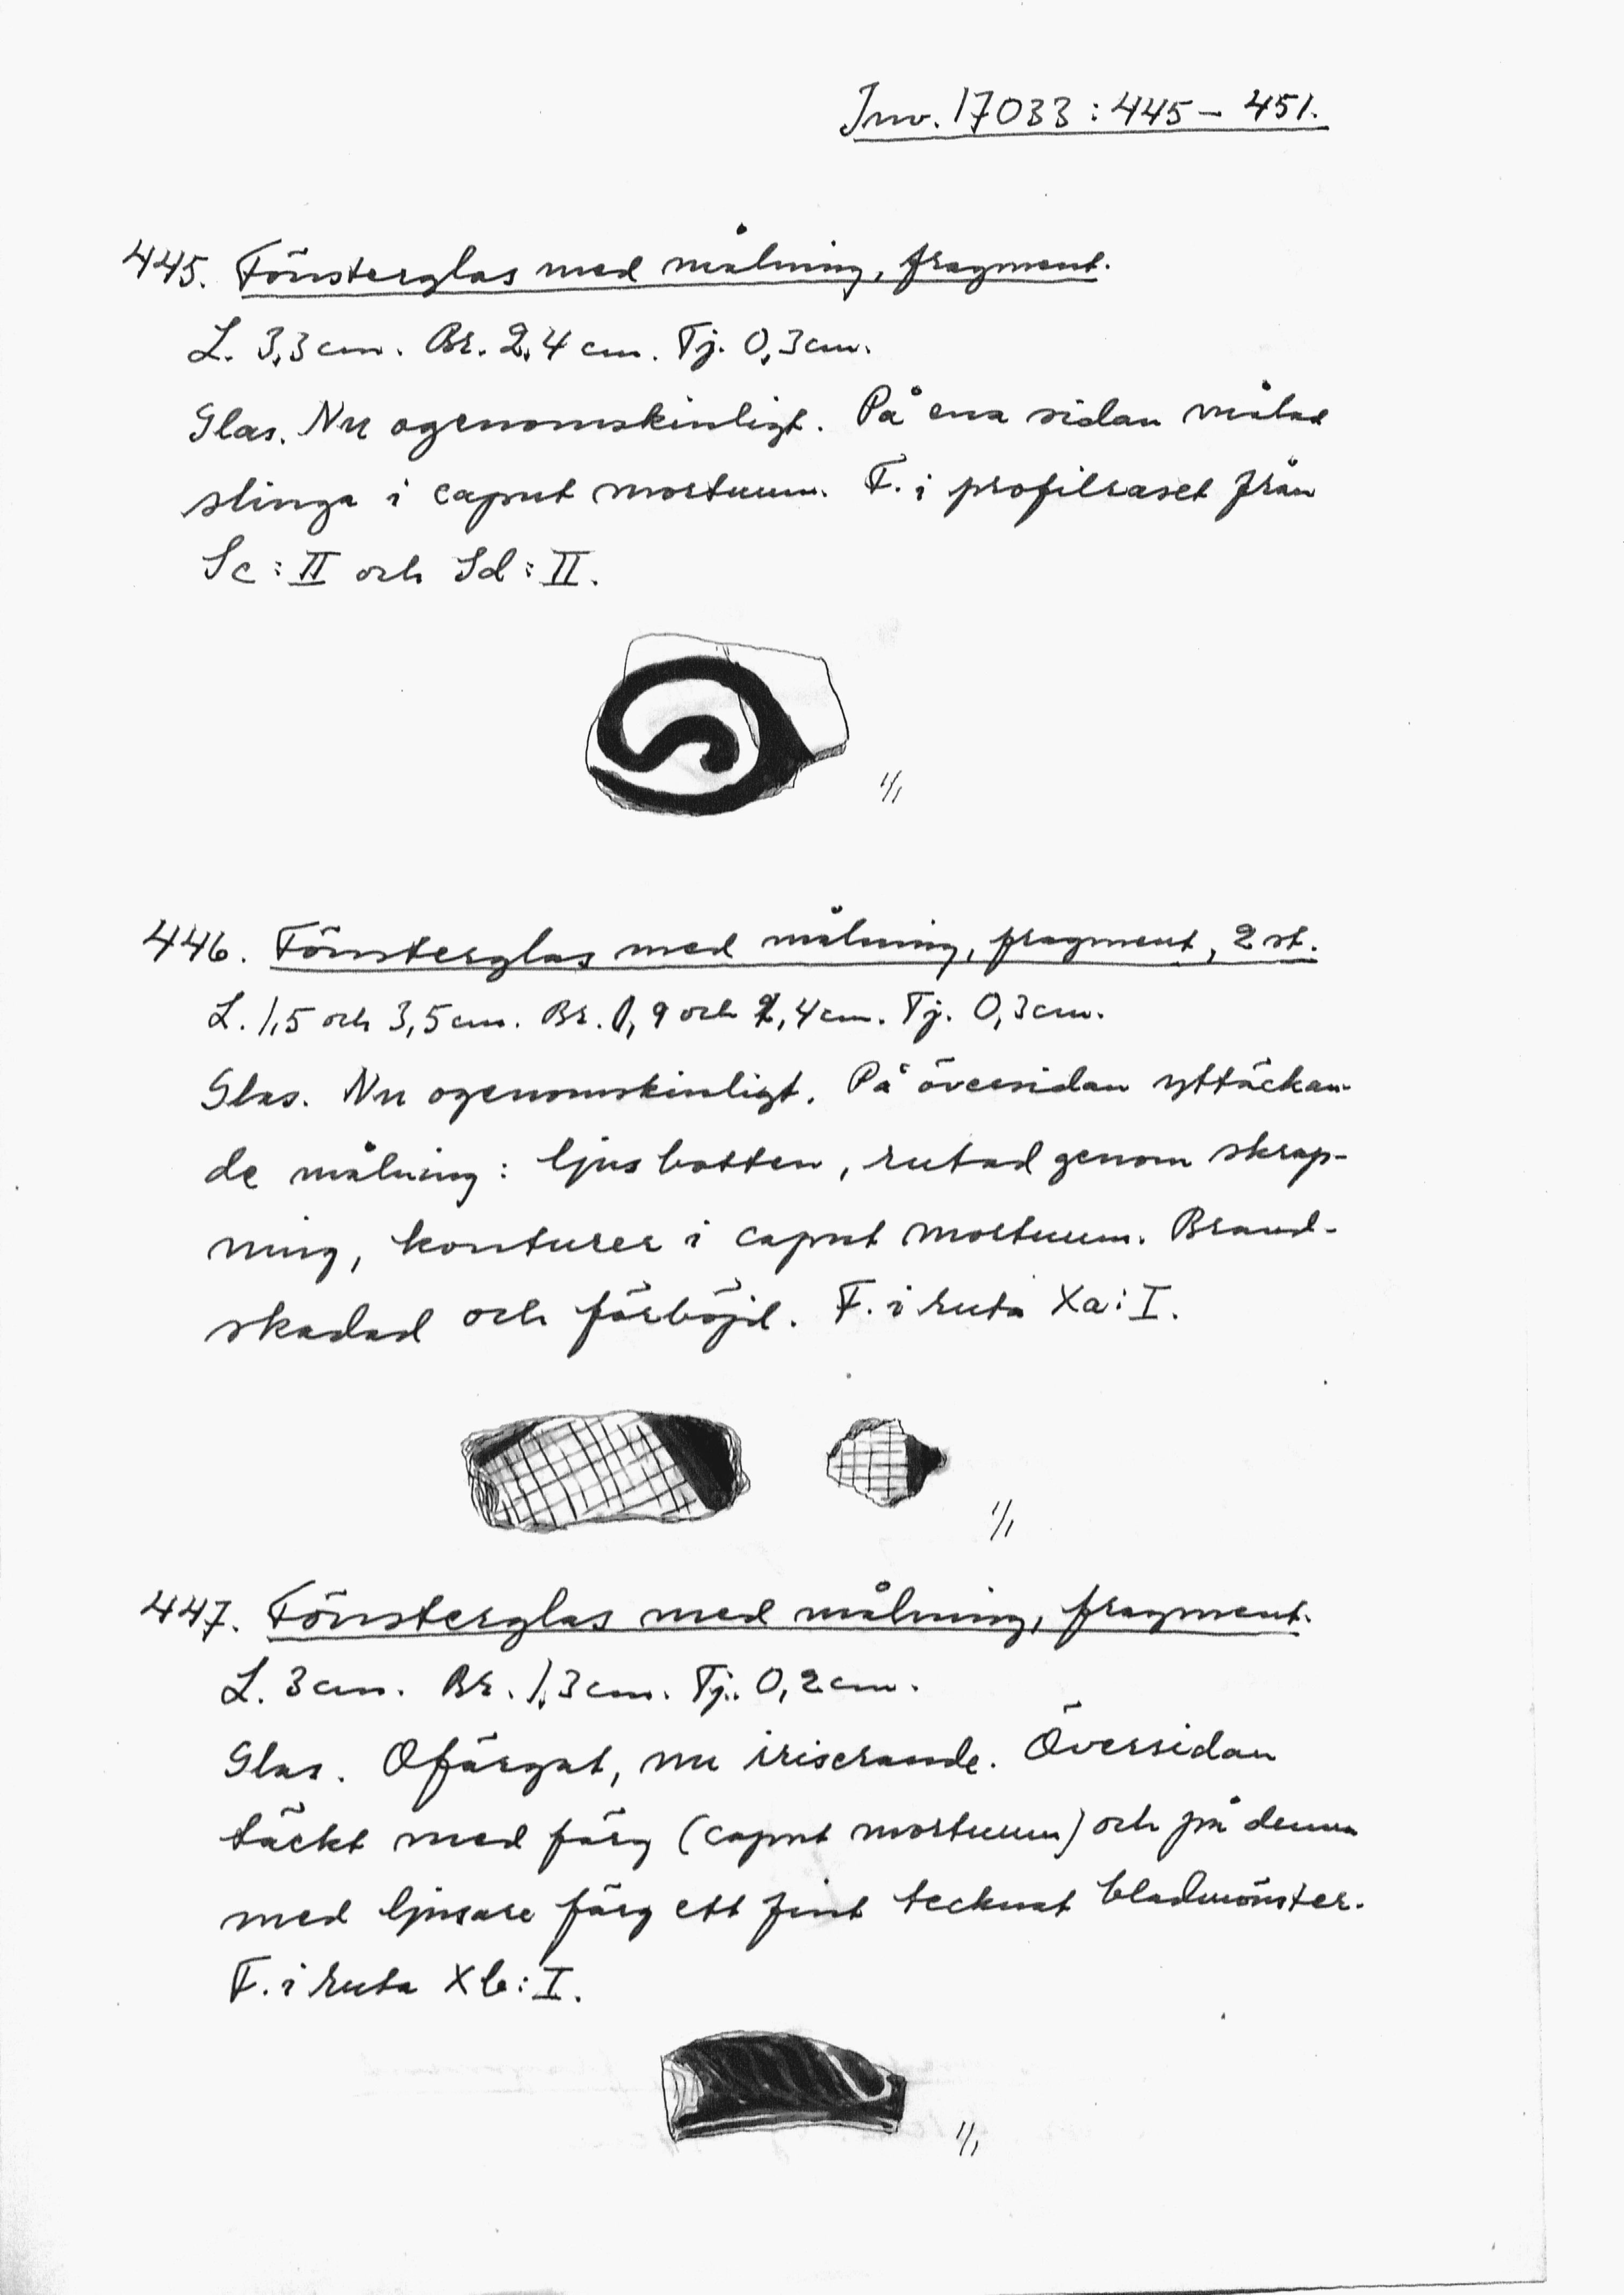 Inv. 17033:445 – 451.
445. Fönsterglas med målning, fragment.
L. 3,3 cm. Br. 2,4 cm. Tj. 0,3 cm.
Glas. Nu ogenomskinligt. På ena sidan målad
slinga i caput mortuum. F. i profilraset från
Sc:II och Sd:II.
1/1
446. Fönsterglas med målning, fragment, 2 st.
L. 1,5 och 3,5 cm. Br. 0,9 och 2,4 cm. Tj. 0,3 cm.
Glas. Nu ogenomskinligt. På översidan yttäckan-
de målning: ljus botten, rutad genom skrap-
ning, konturer i caput mortuum. Brand-
skadad och förböjd. F. i ruta Xa:I.
1/1
447. Fönsterglas med målning, fragment.
L. 3 cm. Br. 1,3 cm. Tj. 0,2 cm.
Glas. Ofärgat, nu iriserande. Översidan
täckt med färg (caput mortuum) och på denna
med ljusare färg ett fint tecknat bladmönster.
F. i ruta Xb:I.
1/1